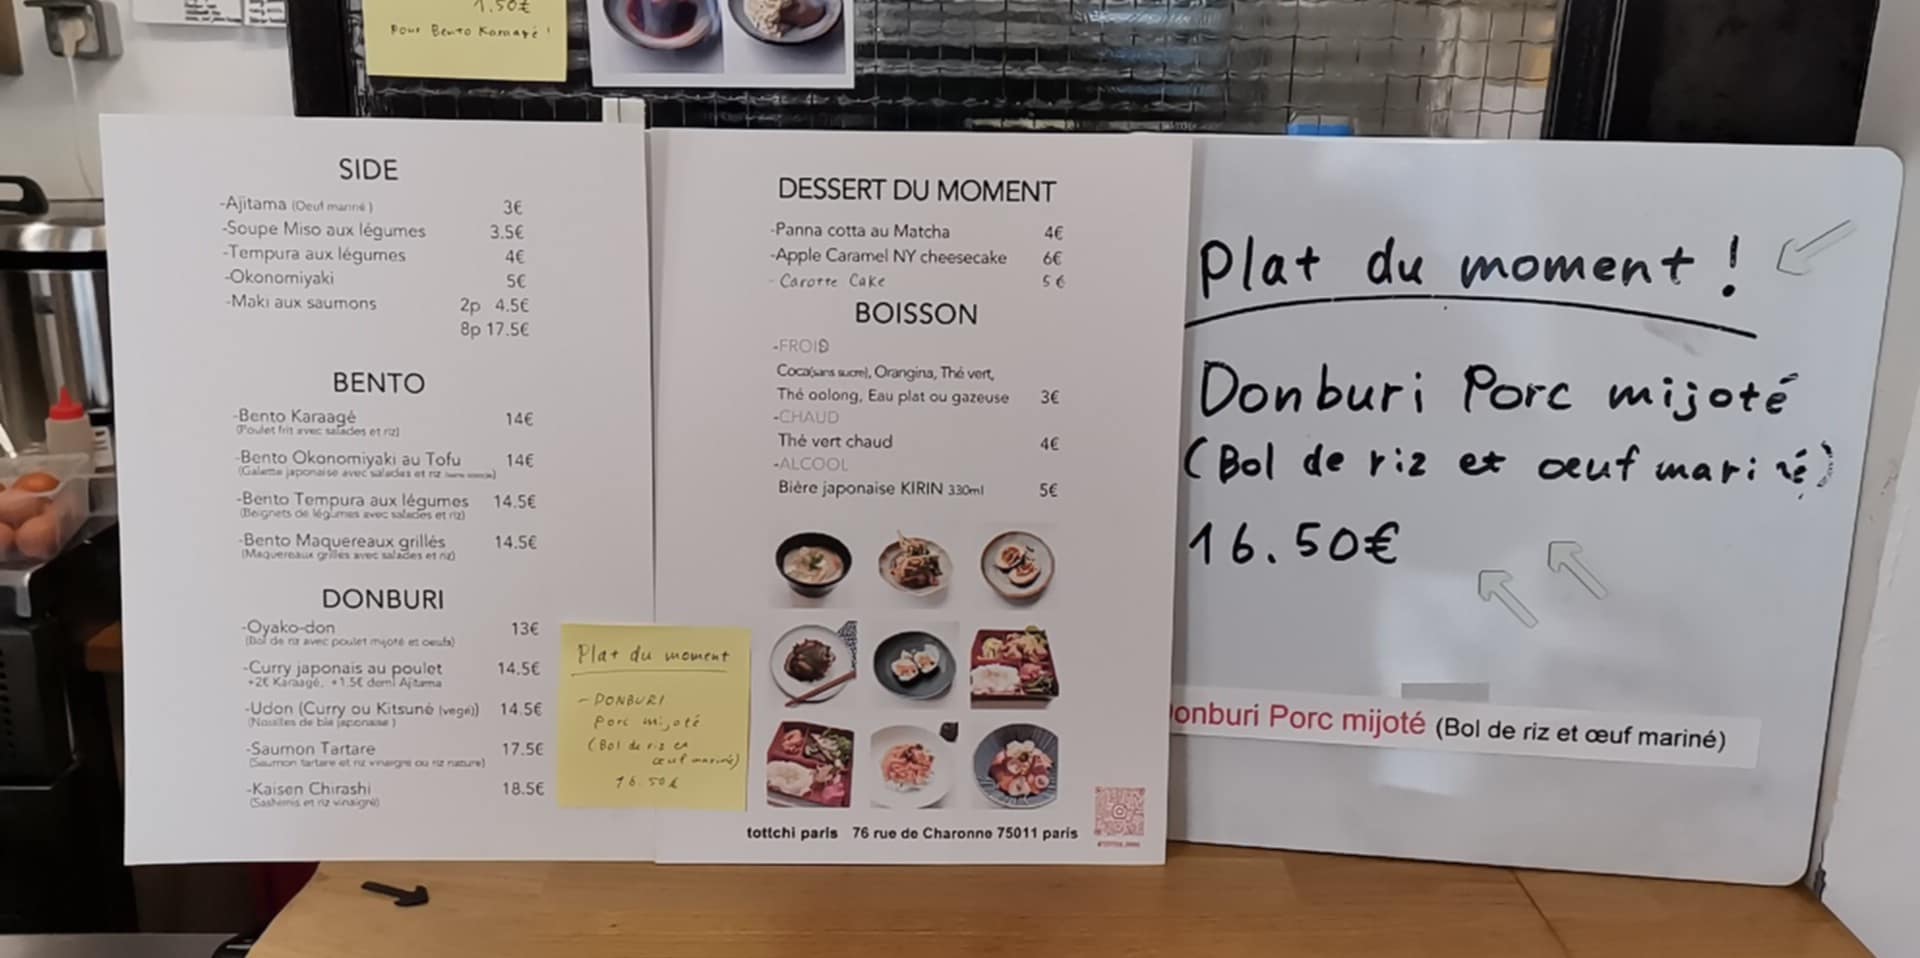 1.50€
Pour Bento Karaagé !
SIDE
-Ajitama (Oeuf mariné ) 3€
-Soupe Miso aux légumes 3.5€
-Tempura aux légumes 4€
-Okonomiyaki 5€
-Maki aux saumons 2p 4.5€
8p 17.5€
BENTO
-Bento Karaagé 14€
(Poulet frit avec salades et riz)
-Bento Okonomiyaki au Tofu 14€
(Galette japonaise avec salades et riz
-Bento Tempura aux légumes 14.5€
(Beignets de légumes avec salades et riz)
-Bento Maquereaux grillés 14.5€
(Maquereaux grillés avec salades et riz)
DONBURI
-Oyako-don 13€
(Bol de riz avec poulet mijoté et oeufs)
-Curry japonais au poulet 14.5€
+2€ Karaagé, +1.5€ demi Ajitama
-Udon (Curry ou Kitsuné (vegé)) 14.5€
(Nouilles de blé japonaise )
-Saumon Tartare 17.5€
(Saumon tartare et riz vinaigré ou riz nature)
-Kaisen Chirashi 18.5€
(Sashimis et riz vinaigré)
Plat du moment
- DONBURI
Porc mijoté
(Bol de riz et
œuf mariné)
16.50€
DESSERT DU MOMENT
-Panna cotta au Matcha 4€
-Apple Caramel NY cheesecake 6€
- Carotte Cake 5€
BOISSON
-FROID
Coca(sans sucre), Orangina, Thé vert,
Thé oolong, Eau plat ou gazeuse 3€
-CHAUD
Thé vert chaud 4€
-ALCOOL
Bière japonaise KIRIN 330ml 5€
tottchi paris 76 rue de Charonne 75011 paris
Plat du moment !
Donburi Porc mijoté
(Bol de riz et œuf mariné)
16.50€
onburi Porc mijoté (Bol de riz et œuf mariné)